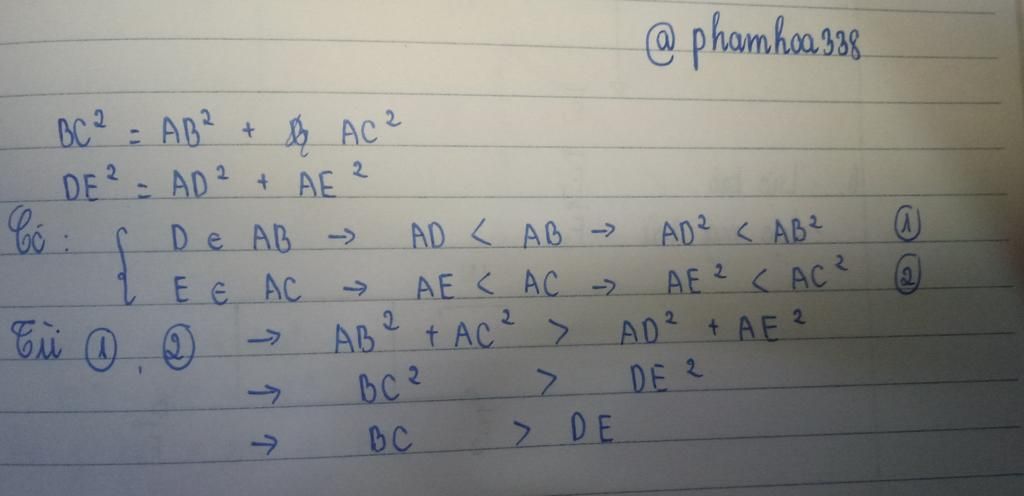 @phamhoa338
BC² = AB² + AC²
DE² = AD² + AE²
Có : { D ∈ AB → AD < AB → AD² < AB² ①
E ∈ AC → AE < AC → AE² < AC² ②
Từ ① , ② → AB² + AC² > AD² + AE²
→ BC² > DE²
→ BC > DE